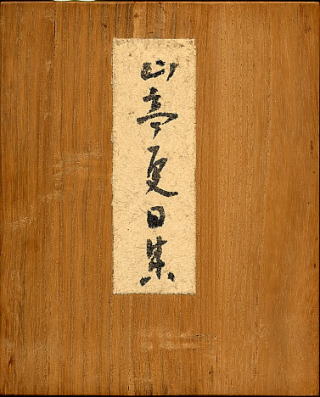 山亭夏日集